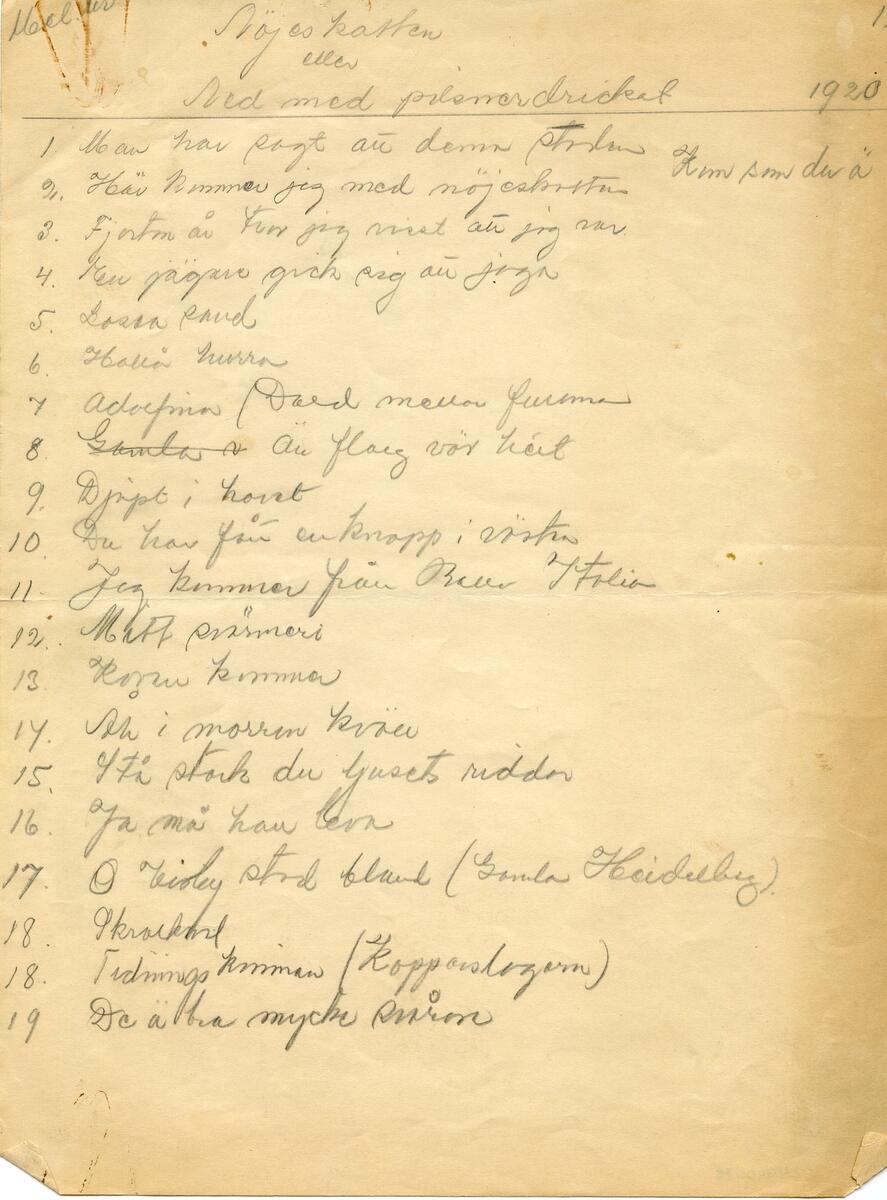 Mel. ur
1.
Nöjeskatten
eller
Ned med pilsnerdrickat 1920
1 Man har sagt att denna staden Kom som du ä
2. Här kommer jag med nöjeskatten
3. Fjorton år tror jag visst att jag var
4. En jägare gick sig att jaga
5. Lossa sand
6. Hallå hurra
7 Adolfina (Dard mellan furorna
8. Gamla v Än flög vår
9. Djupt i havet
10. Du har fått en knapp i västen
11. Jag kommer från Italia
12. Mitt svärmeri
13. Kovan kommer
14. Åh i morron kväll
15. Stå stark du ljusets riddar
16. Ja må han leva
17. O stad bland (Gamla Heidelberg)
18.
18. Tidningskvinnan (Kopparslagarn)
19 De ä bra mycke svårare